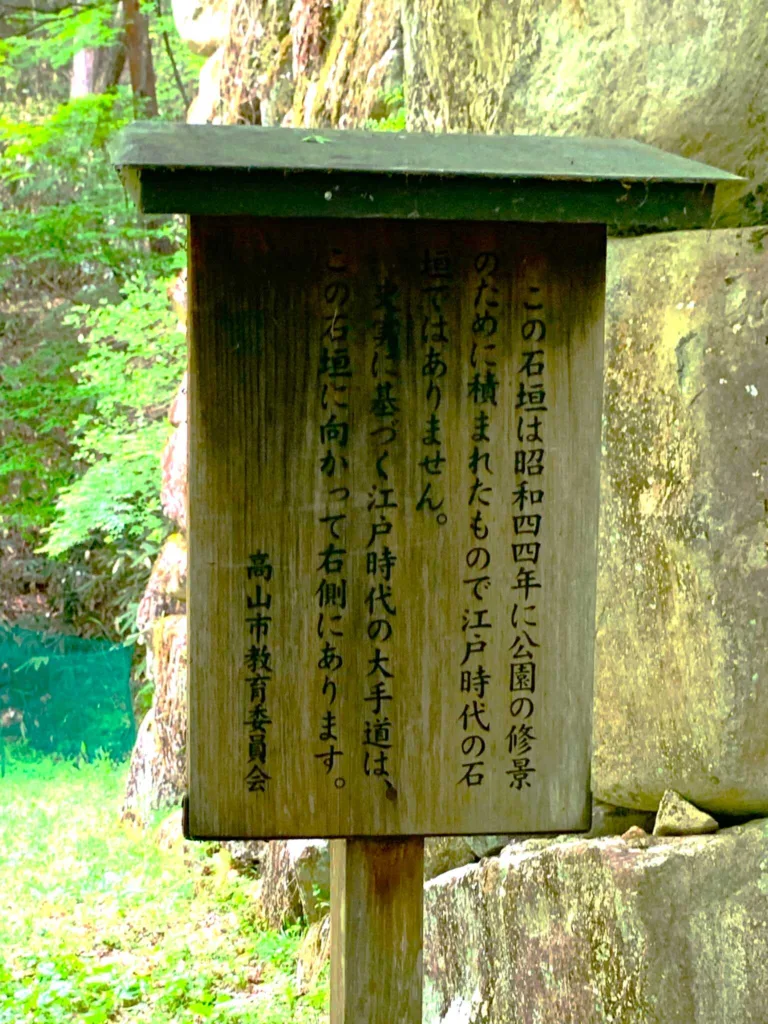 この石垣は昭和四四年に公園の修景
のために積まれたもので江戸時代の石
垣ではありません。
史実に基づく江戸時代の大手道は、
この石垣に向かって右側にあります。
高山市教育委員会